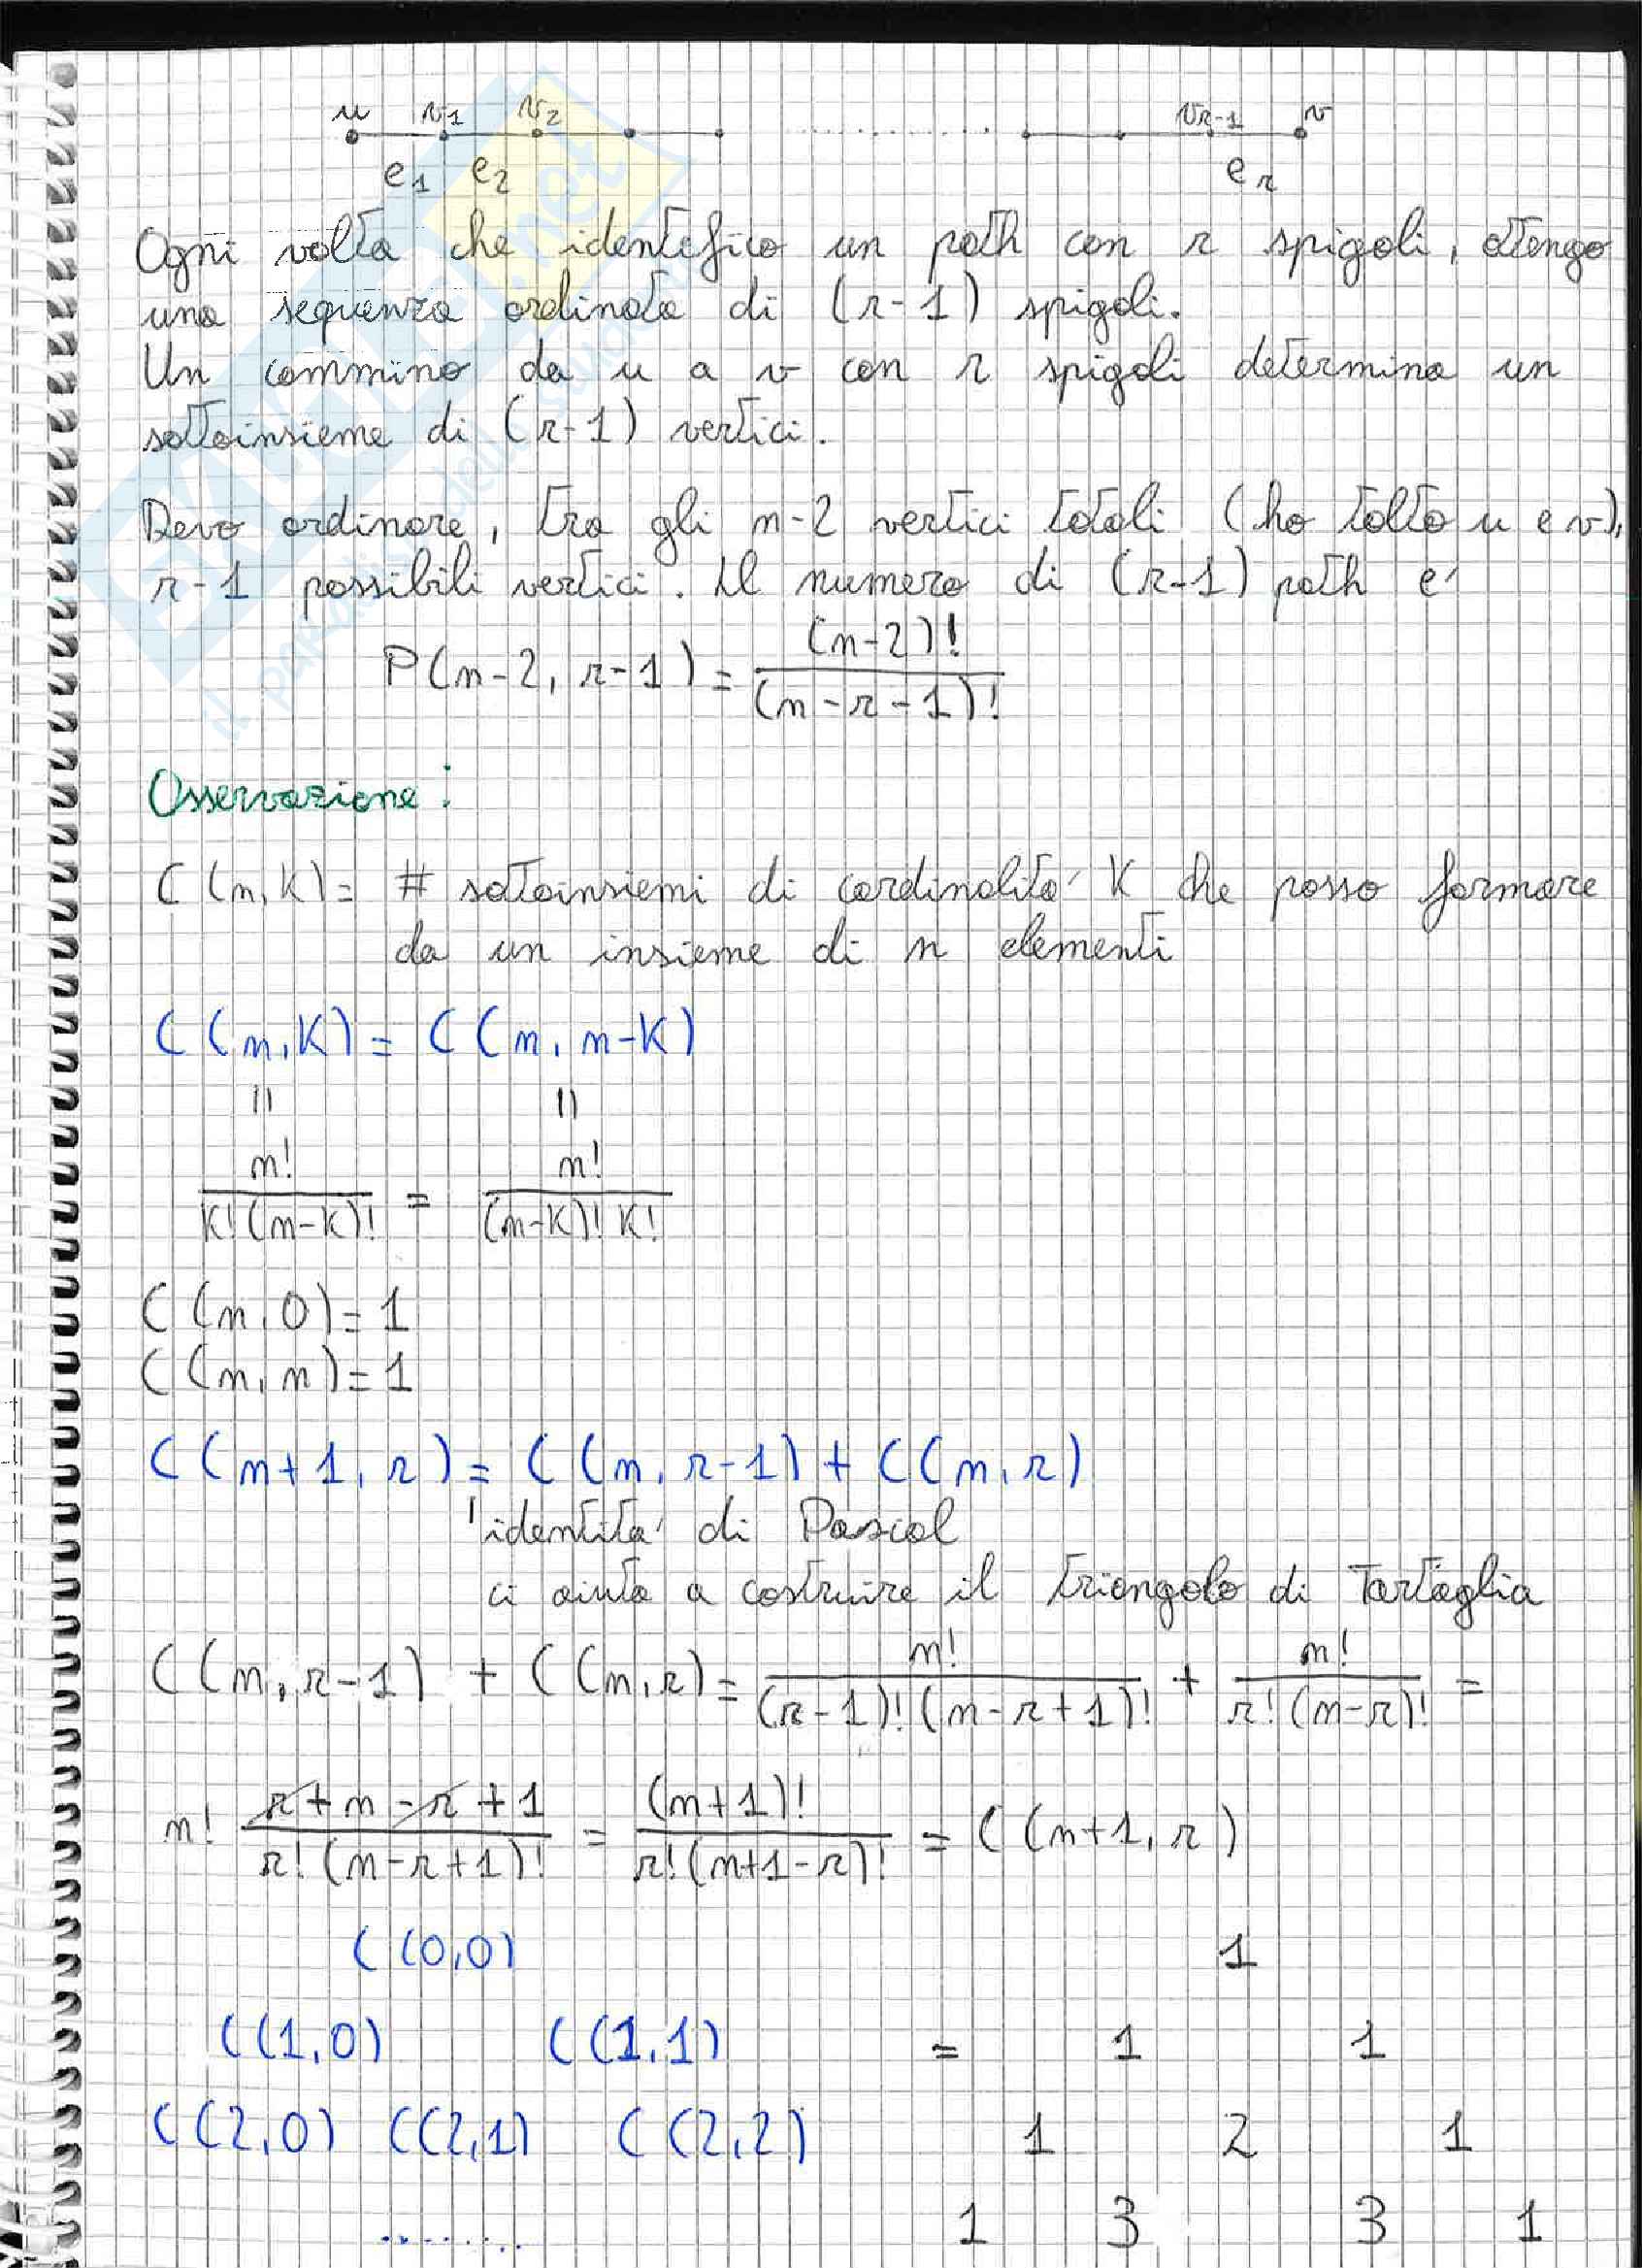 u v₁ v₂ vᵣ₋₁ v
e₁ e₂ eᵣ
Ogni volta che identifico un path con r spigoli, ottengo
una sequenza ordinata di (r-1) spigoli.
Un cammino da u a v con r spigoli determina un
sottoinsieme di (r-1) vertici.
Devo ordinare, tra gli n-2 vertici totali (ho tolto u e v),
r-1 possibili vertici. Il numero di (r-1) path e'
P(n-2, r-1) = (n-2)! / (n-r-1)!
Osservazione:
C(n,K) = # sottoinsiemi di cardinalita' K che posso formare
da un insieme di n elementi
C(n,K) = C(n, n-K)
= =
n! / K!(n-K)! = n! / (n-K)! K!
C(n,0) = 1
C(n,n) = 1
C(n+1, r) = C(n, r-1) + C(n, r)
identita' di Pascal
ci aiuta a costruire il triangolo di Tartaglia
C(n, r-1) + C(n, r) = n! / (r-1)! (n-r+1)! + n! / r! (n-r)! =
n! r+n-r+1 / r! (n-r+1)! = (n+1)! / r! (n+1-r)! = C(n+1, r)
C(0,0) 1
C(1,0) C(1,1) = 1 1
C(2,0) C(2,1) C(2,2) 1 2 1
........ 1 3 3 1